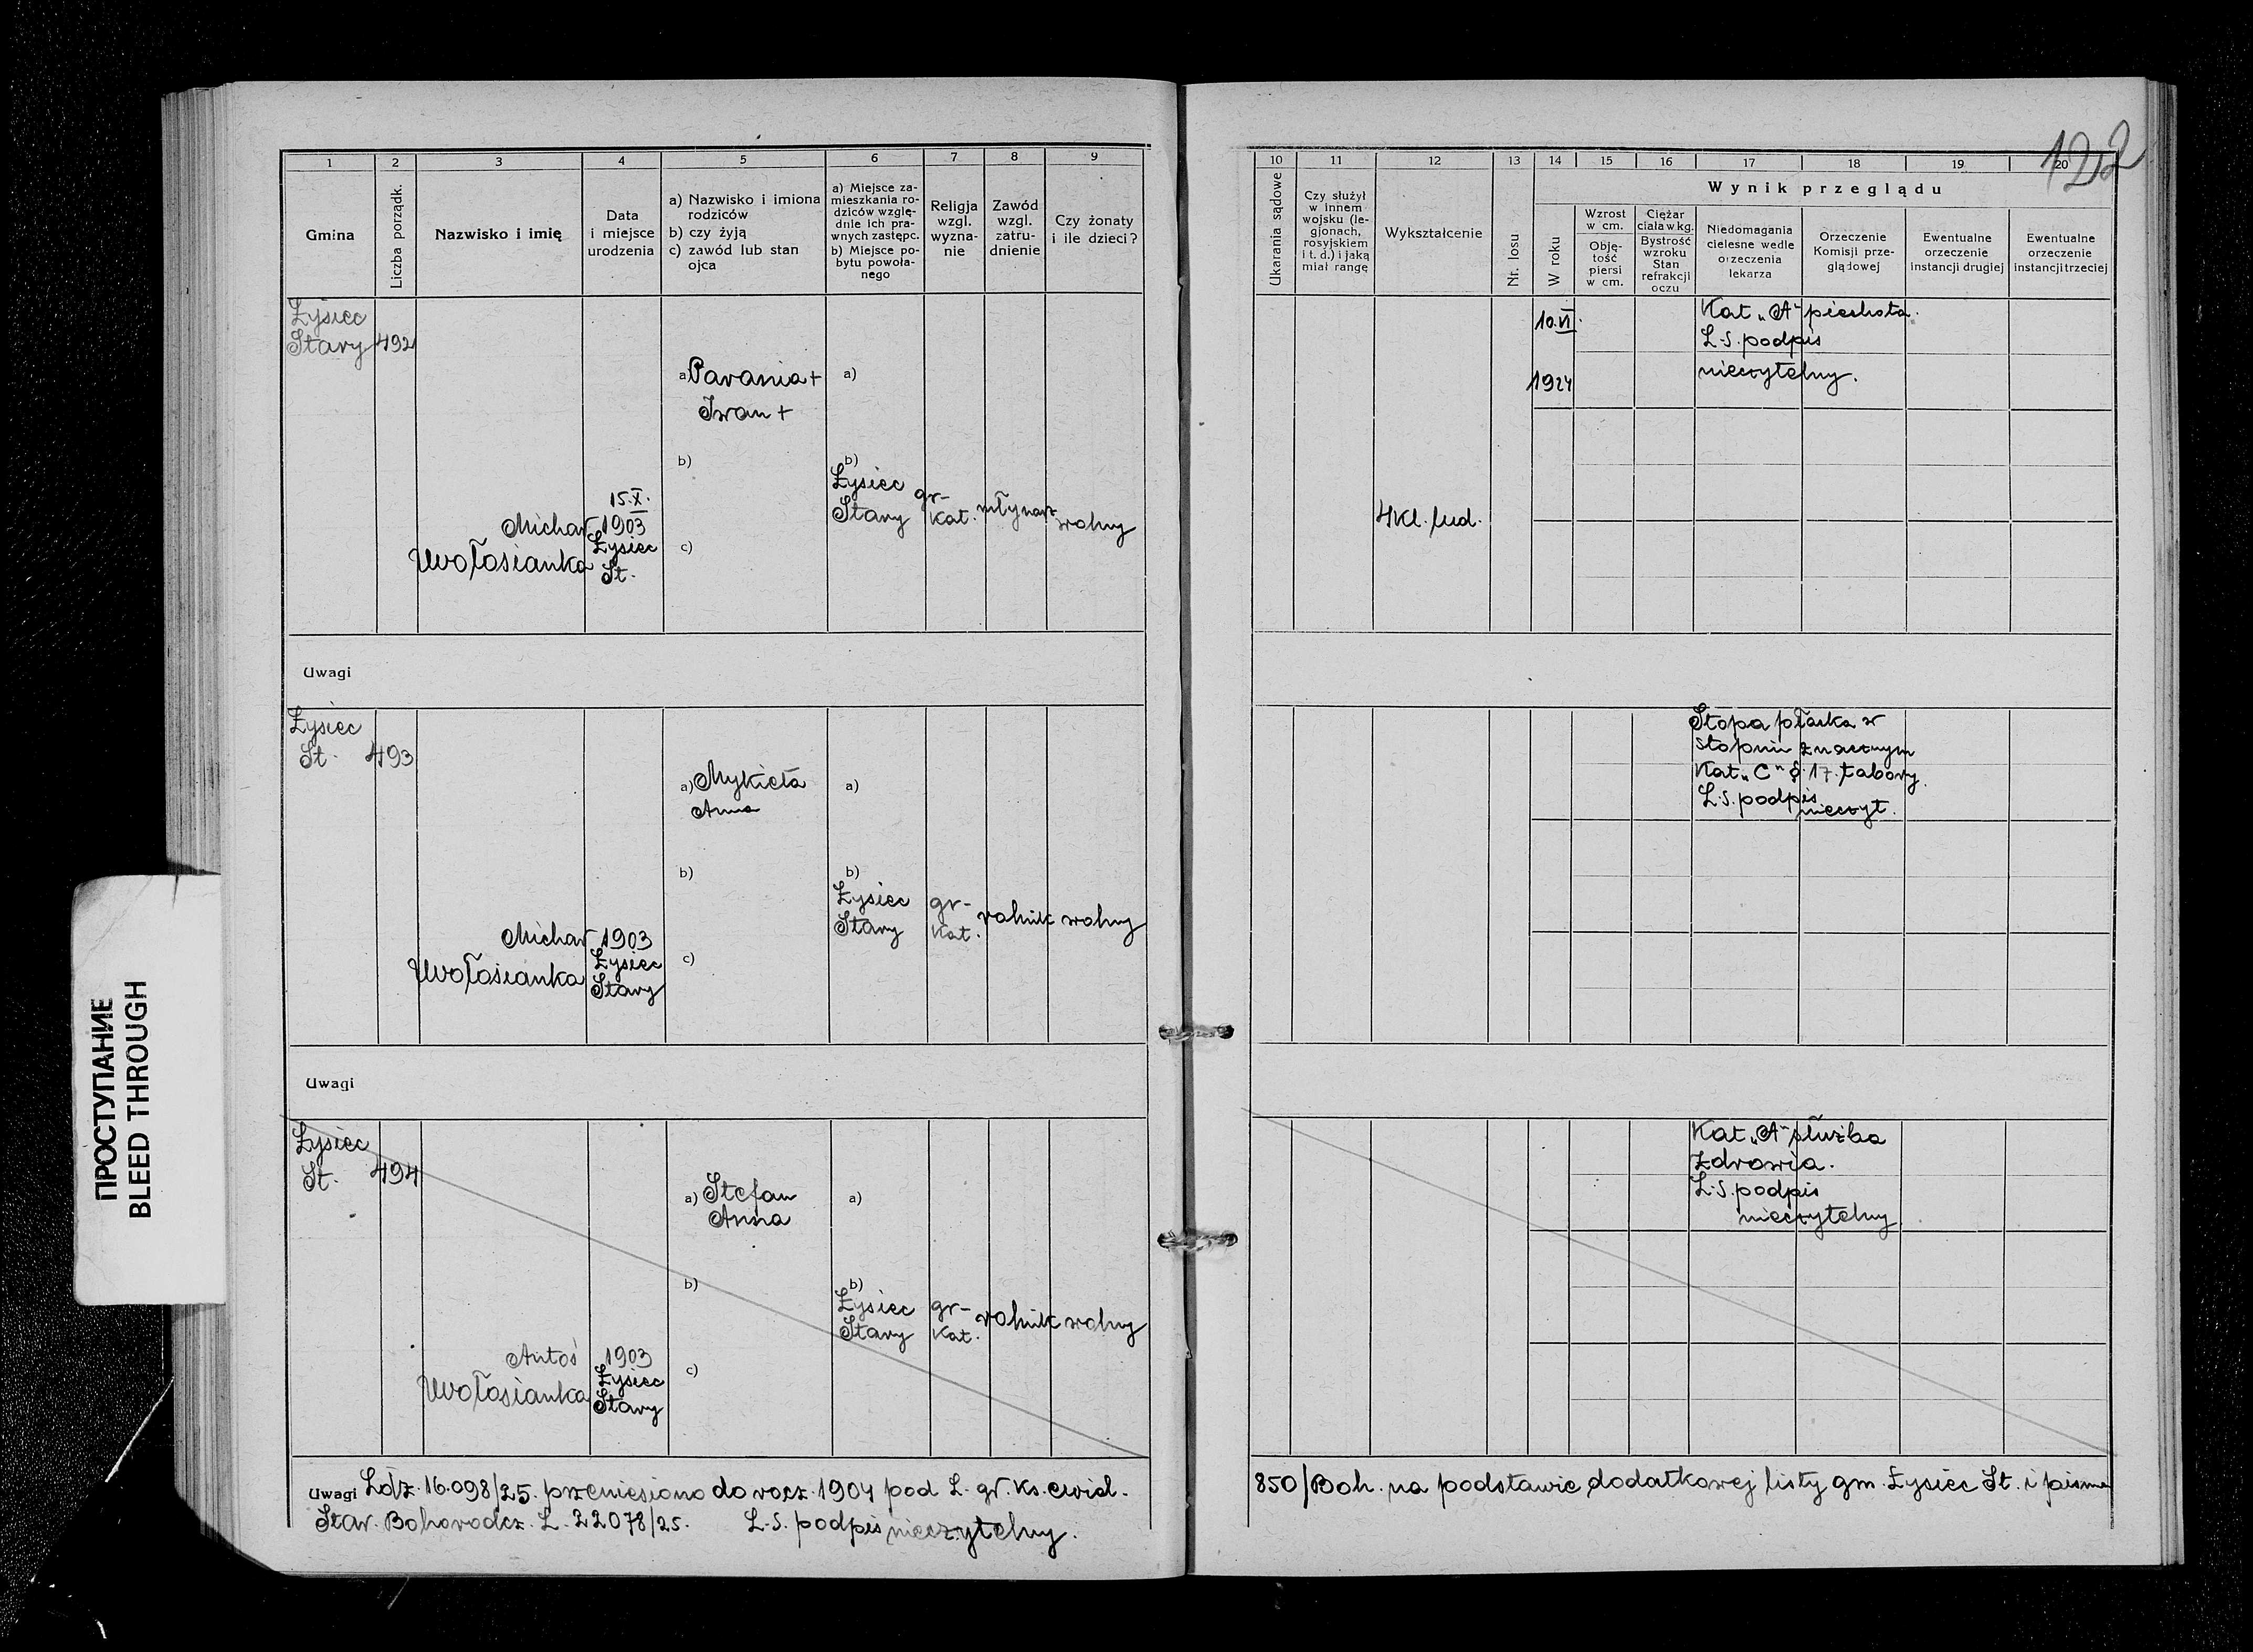 122
1 2 3 4 5 6 7 8 9
Gmina
Liczba porządk.
Nazwisko i imię
Data
i miejsce
urodzenia
a) Nazwisko i imiona
rodziców
b) czy żyją
c) zawód lub stan
ojca
a) Miejsce za-
mieszkania ro-
dziców wzglę-
dnie ich pra-
wnych zastępc.
b) Miejsce po-
bytu powoła-
nego
Religja
wzgl.
wyzna-
nie
Zawód
wzgl.
zatru-
dnienie
Czy żonaty
i ile dzieci?
Łysiec
Stary 492
a) Parania +
Iwan +
b)
c)
a)
b)
Łysiec
Stary
Michał
Uwołosianka
15.X.
1903
Łysiec
St.
gr-
kat.
młynarz
wolny
Uwagi
Łysiec
St. 493
a) Mykieta
Anna
b)
c)
a)
b)
Łysiec
Stary
Michał
Uwołosianka
1903
Łysiec
Stary
gr-
kat.
rolnik
wolny
Uwagi
Łysiec
St. 494
a) Stefan
Anna
b)
c)
a)
b)
Łysiec
Stary
Antoś
Uwołosianka
1903
Łysiec
Stary
gr-
kat.
rolnik
wolny
Uwagi Ldz. 16.098/25. przeniesiono do rocz. 1904 pod L. gr. ks. ewid.
Star. Bohorodcz. L. 22078/25. L.S. podpis nieczytelny.
10 11 12 13 14 15 16 17 18 19 20
Ukarania sądowe
Czy służył
w innem
wojsku (le-
gjonach,
rosyjskiem
i t. d.) i jaką
miał rangę
Wykształcenie
Nr. losu
Wynik przeglądu
W roku
Wzrost
w cm.
Obję-
tość
piersi
w cm.
Ciężar
ciała w kg.
Bystrość
wzroku
Stan
refrakcji
oczu
Niedomagania
cielesne wedle
orzeczenia
lekarza
Orzeczenie
Komisji prze-
glądowej
Ewentualne
orzeczenie
instancji drugiej
Ewentualne
orzeczenie
instancji trzeciej
10.VI.
1924
Kat „A" piechota.
L.S. podpis
nieczytelny.
4 kl. lud.
Stopa płaska w
stopniu znacznym
Kat „C" § 17. tabory.
L.S. podpis
nieczyt.
Kat „A" służba
zdrowia.
L.S. podpis
nieczytelny
850/Boh. na podstawie dodatkowej listy gm. Łysiec St. i pisma
ПРОСТУПАНИЕ
BLEED THROUGH